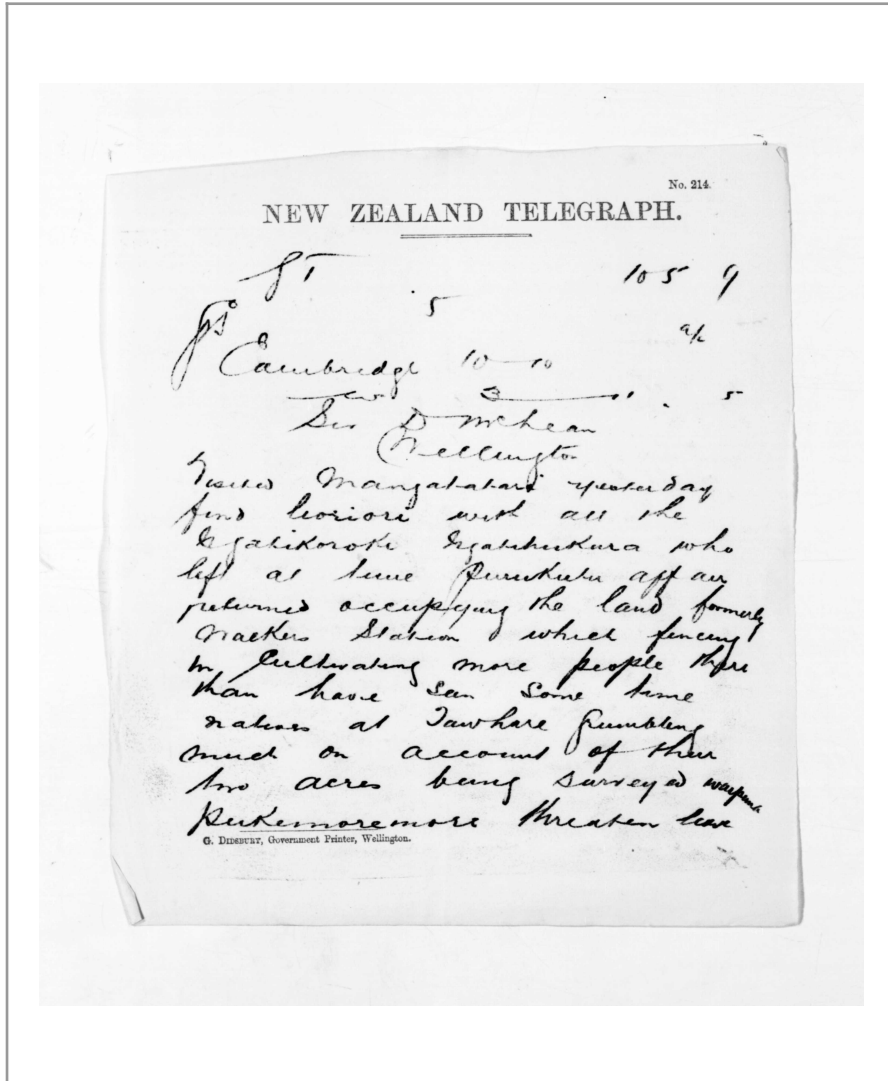 No. 214.
NEW ZEALAND TELEGRAPH.
105
5
Cambridge 10-10
5
Sir D McLean
Wellington
Visited Mangatatari yesterday
find horiori with all the
Ngatikoroki Ngatihukura who
left at time Purukutu affair
returned occupying the land formerly
Station which fencing
in Cultivating more people there
than have seen some time
natives at Tawhare Grumbling
much on account of their
two acres being surveyed
Pukemoremore threaten leave
G. DIDSBURY, Government Printer, Wellington.